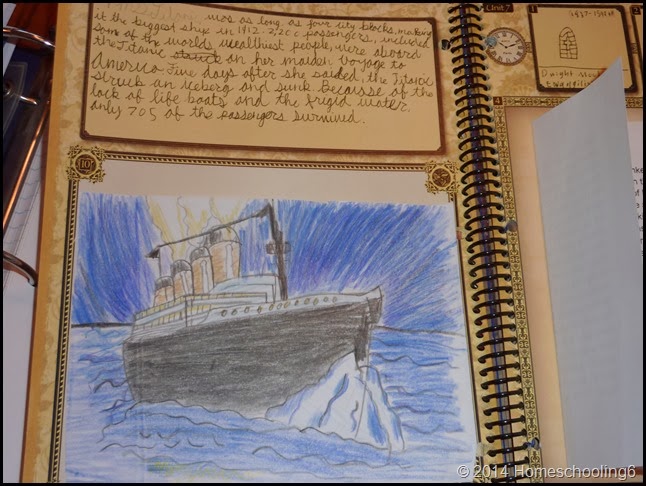 was as long as four city blocks, making
it the biggest ship in 1912. 2,200 passengers, included
some of the worlds wealthiest people, were aboard
the Titanic struck on her maiden voyage to
America. Five days after she sailed, the Titanic
struck an Iceberg and sunk. Because of the
lack of life boats and the frigid water,
only 705 of the passengers survived.
110
Unit 7
1
2
1837-1899
Dwight
4
© 2014 Homeschooling6